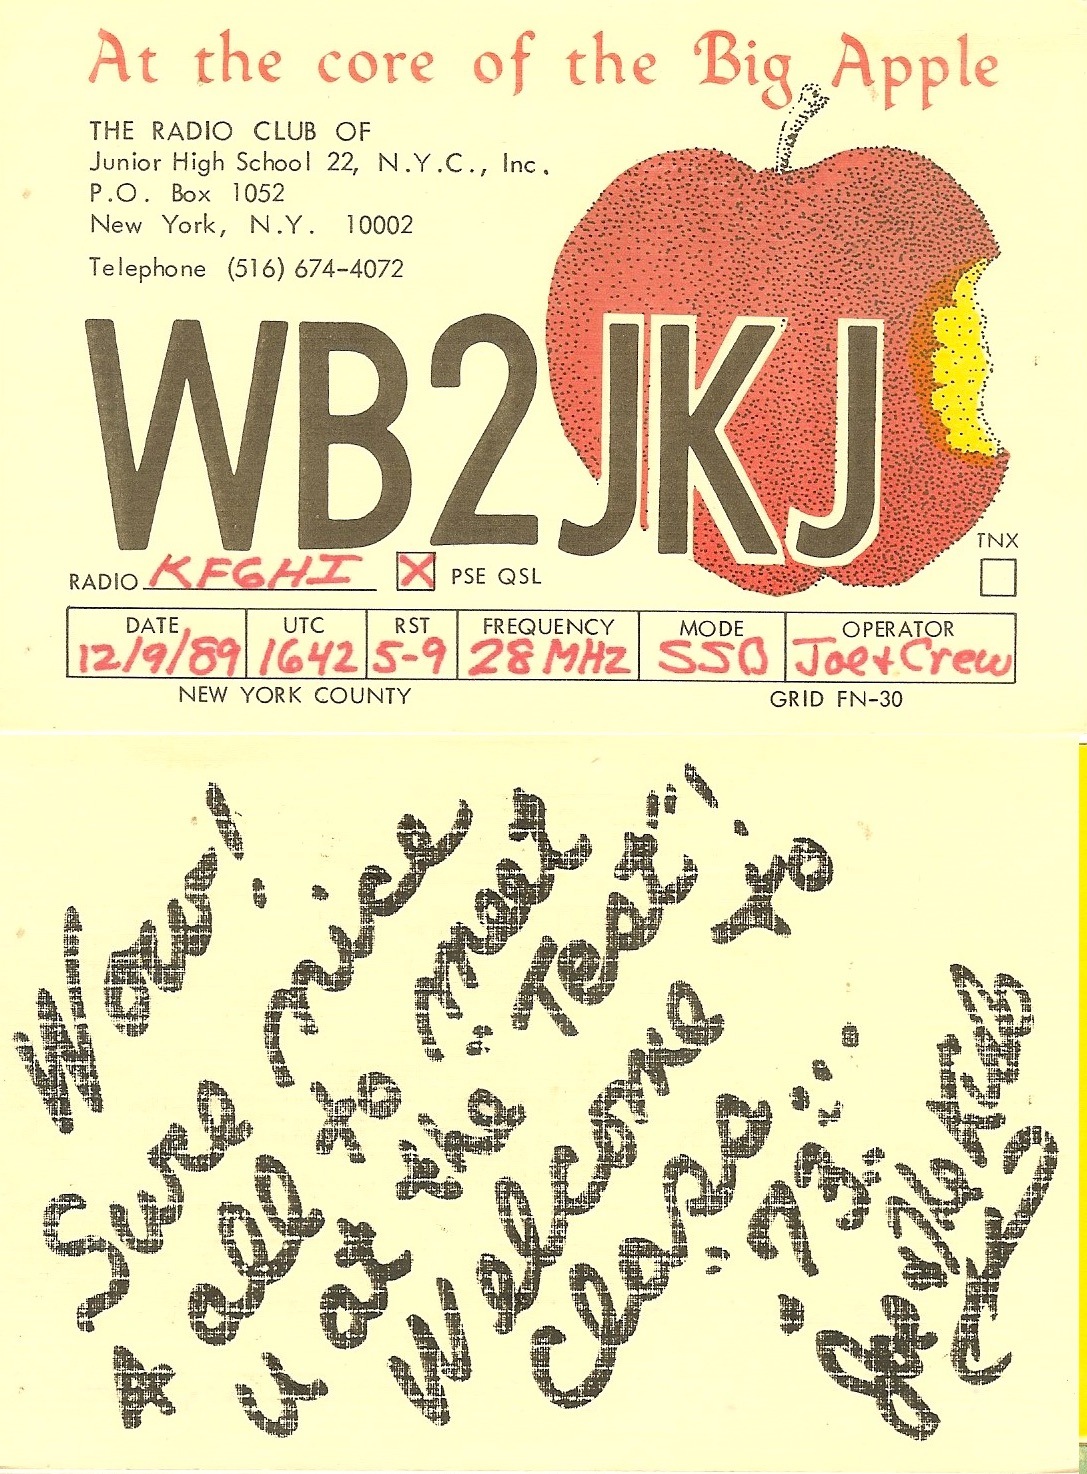 At the core of the Big Apple
THE RADIO CLUB OF
Junior High School 22, N.Y.C., Inc.
P.O. Box 1052
New York, N.Y. 10002
Telephone (516) 674-4072
WB2JKJ
TNX
RADIO KF6HI X PSE QSL
DATE UTC RST FREQUENCY MODE OPERATOR
12/9/89 1642 5-9 28 MHz SSB Joe + Crew
NEW YORK COUNTY GRID FN-30
Wow!
Sure nice
all to meet
u at the "Test"!
Welcome to
Class
73
Joe